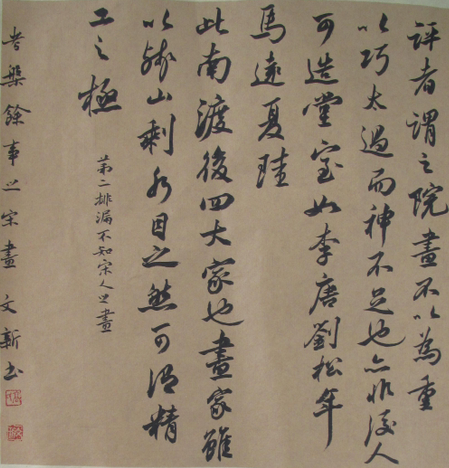 評者謂之院畫不以為重
以巧太過而神不足也亦非後人
可造堂室如李唐劉松年
馬遠夏珪
此南渡後四大家也畫家雖
以殘山剩水目之然可謂精
工之極
第二排漏不知宋人之畫
考槃餘事之宋畫 文新書